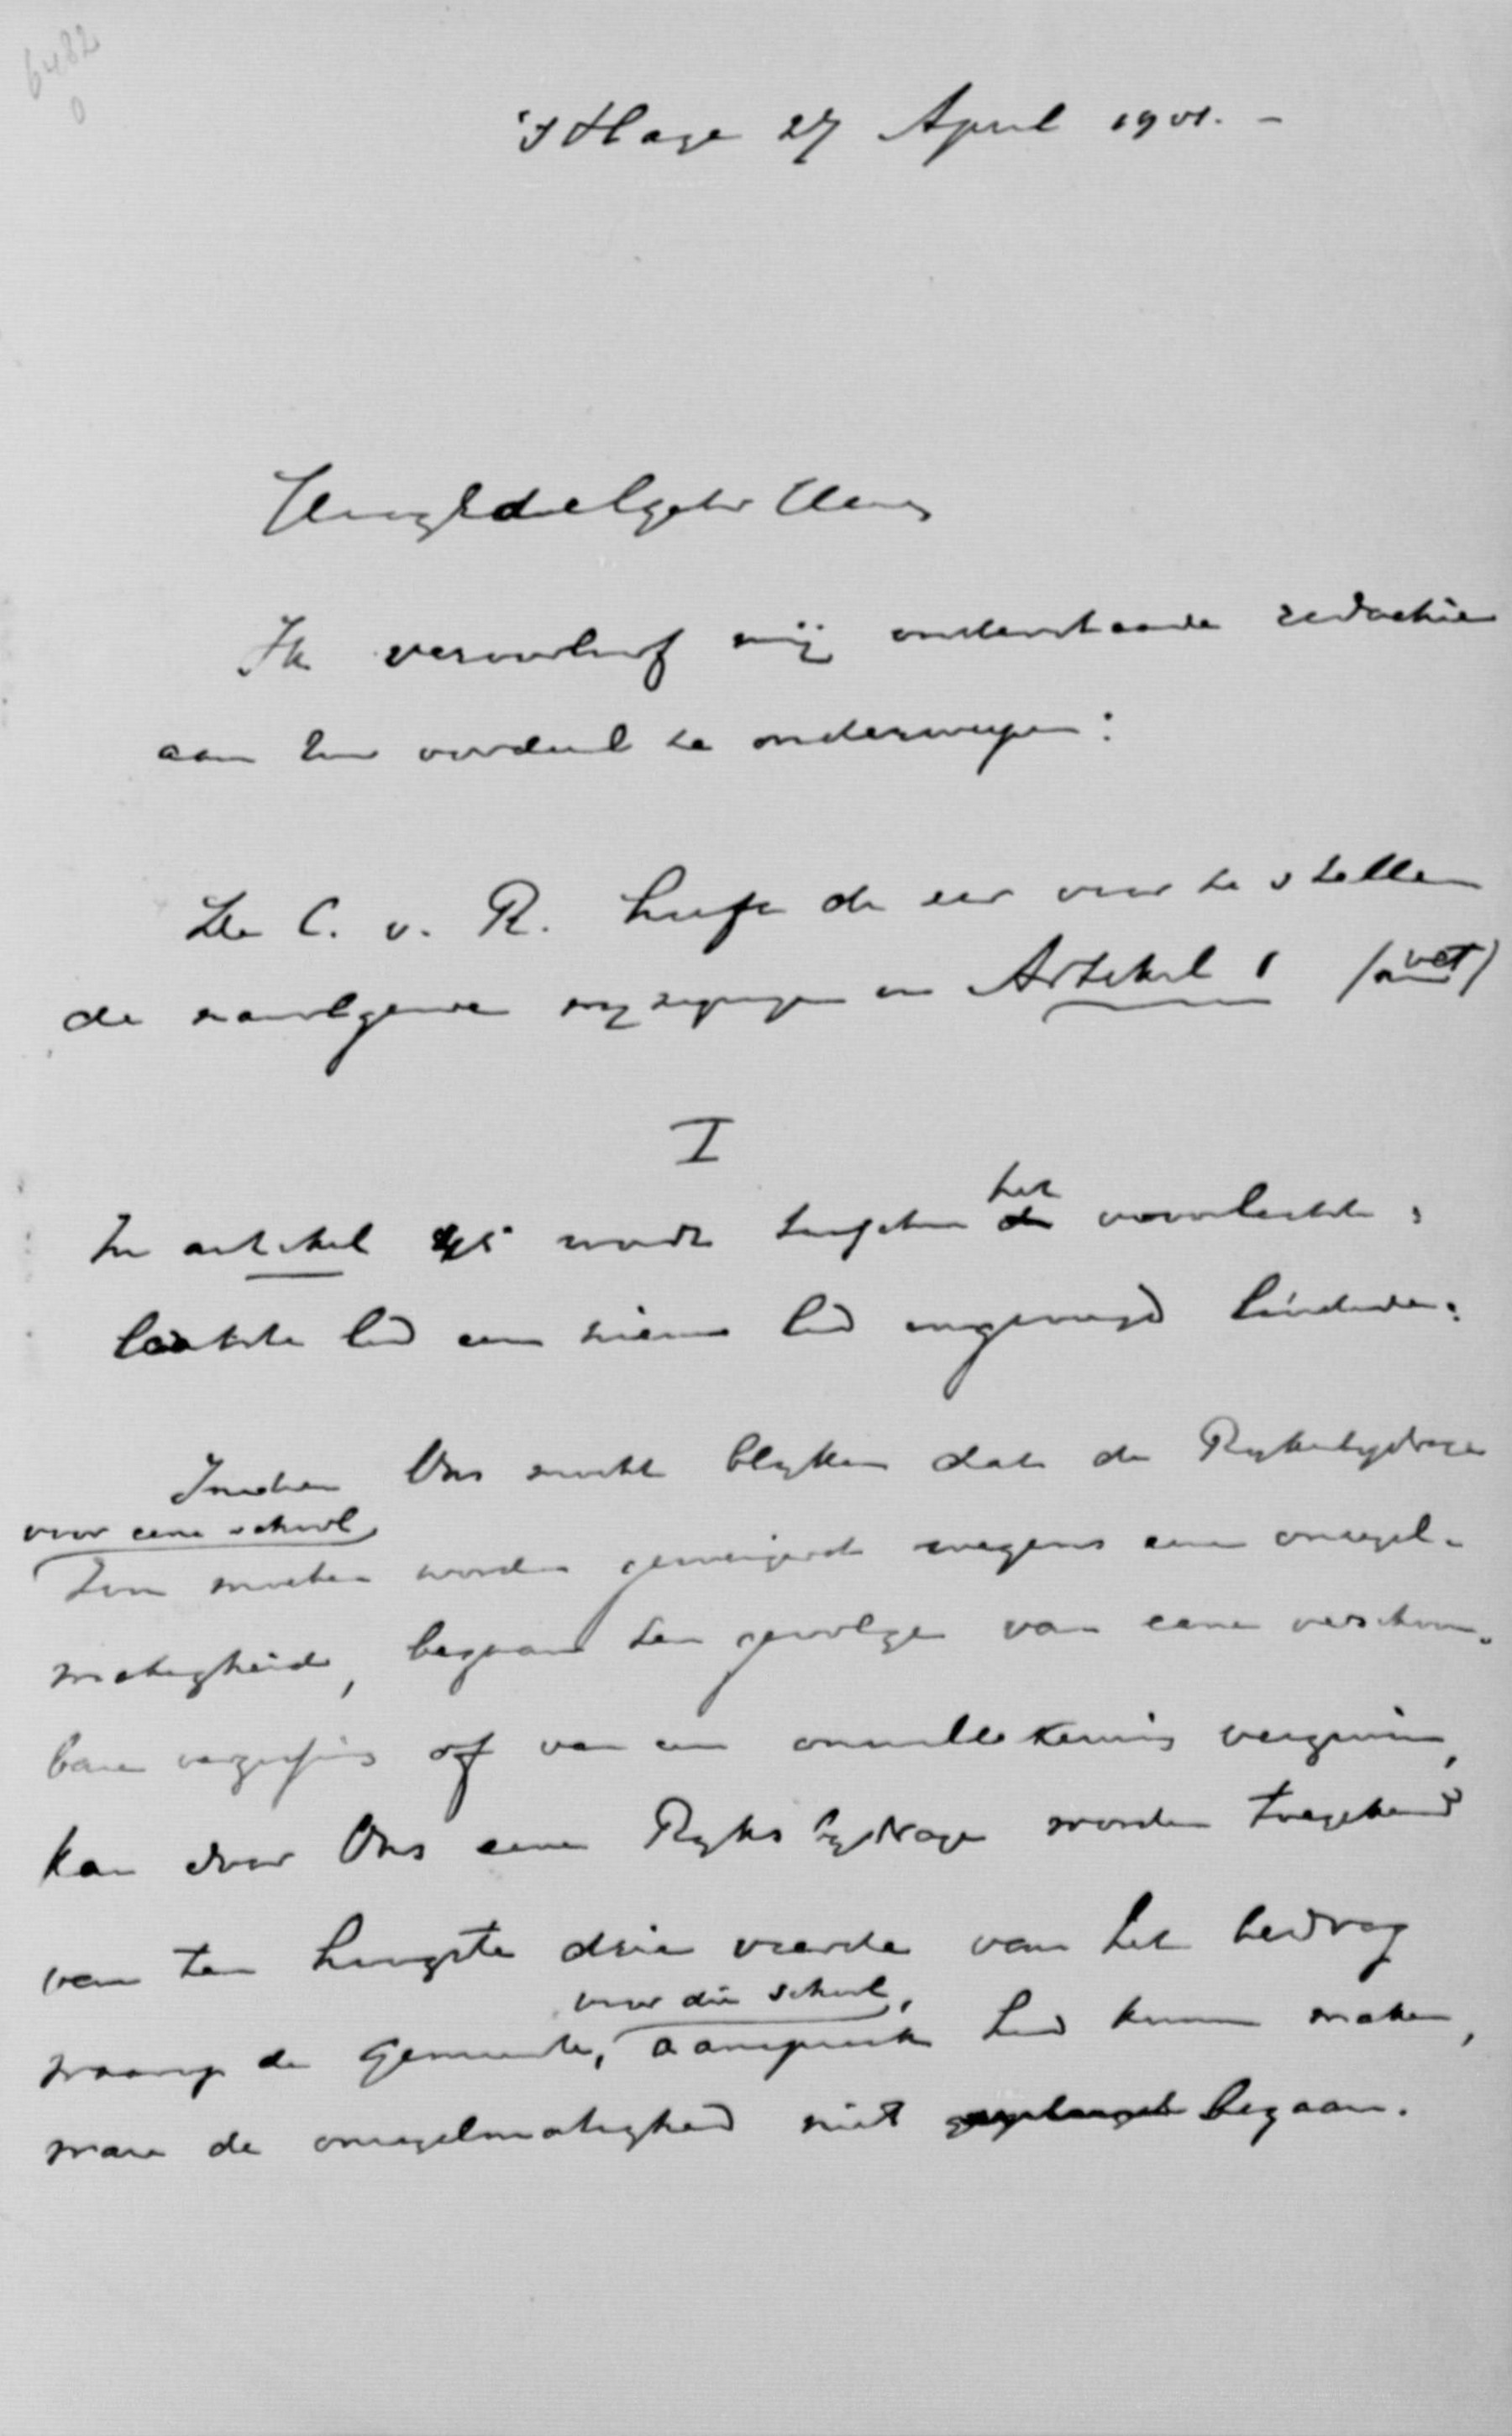 6482
0
's Hage 27 April 1901. -
HoogEdelgestr Heer
Ik veroorloof mij onderstaande redactie
aan Uw oordeel te onderwerpen:
De C. v. R. heeft de eer voor te stellen
de navolgende wijzigingen in Artikel 1 (wet)
I
In artikel 45 wordt tusschen het voorlaatste &
laatste lid een nieuw lid ingevoegd luidende:
Indien Ons mocht blijken dat de Rijksbijdrage
voor eene school
zou moeten worden geweigerd wegens eene onregel-
matigheid, begaan ten gevolge van eene verschoon-
bare vergissing of van een onwillekeurig verzuim,
kan door Ons eene Rijksbijdrage worden toegekend
van ten hoogste drie vierde van het bedrag
voor die school,
waarop de gemeente, aanspraak had kunnen maken,
ware de onregelmatigheid niet begaan.